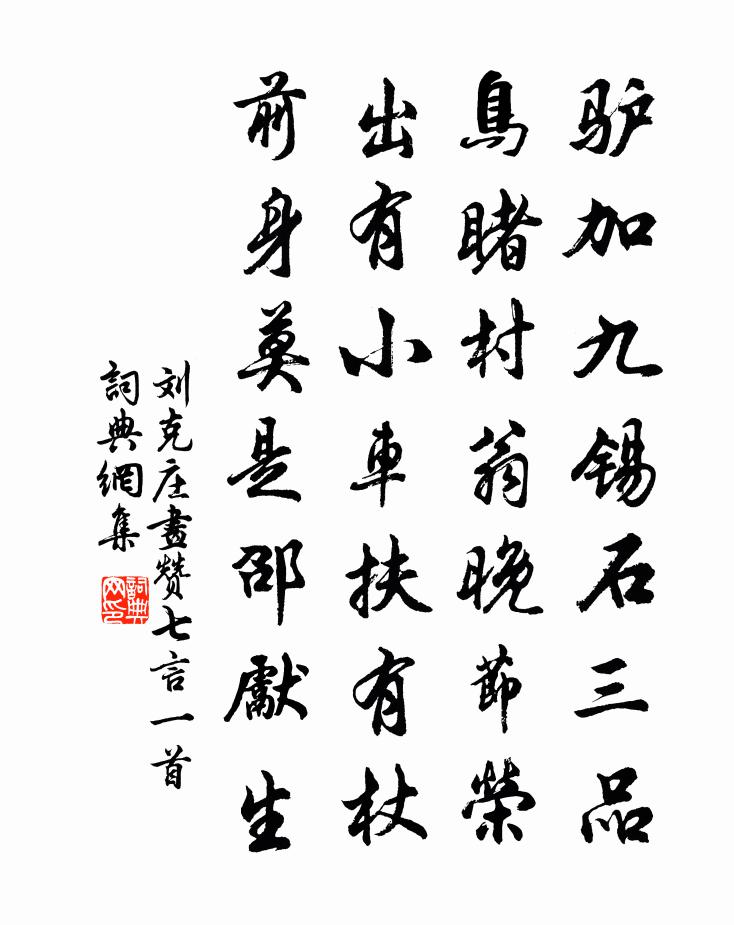 驴加九锡石三品
烏睹村翁晚節榮
出有小車扶有杖
前身莫是邵獻生
刘克庄畫赞七言一首
詞典網集
詞典网印